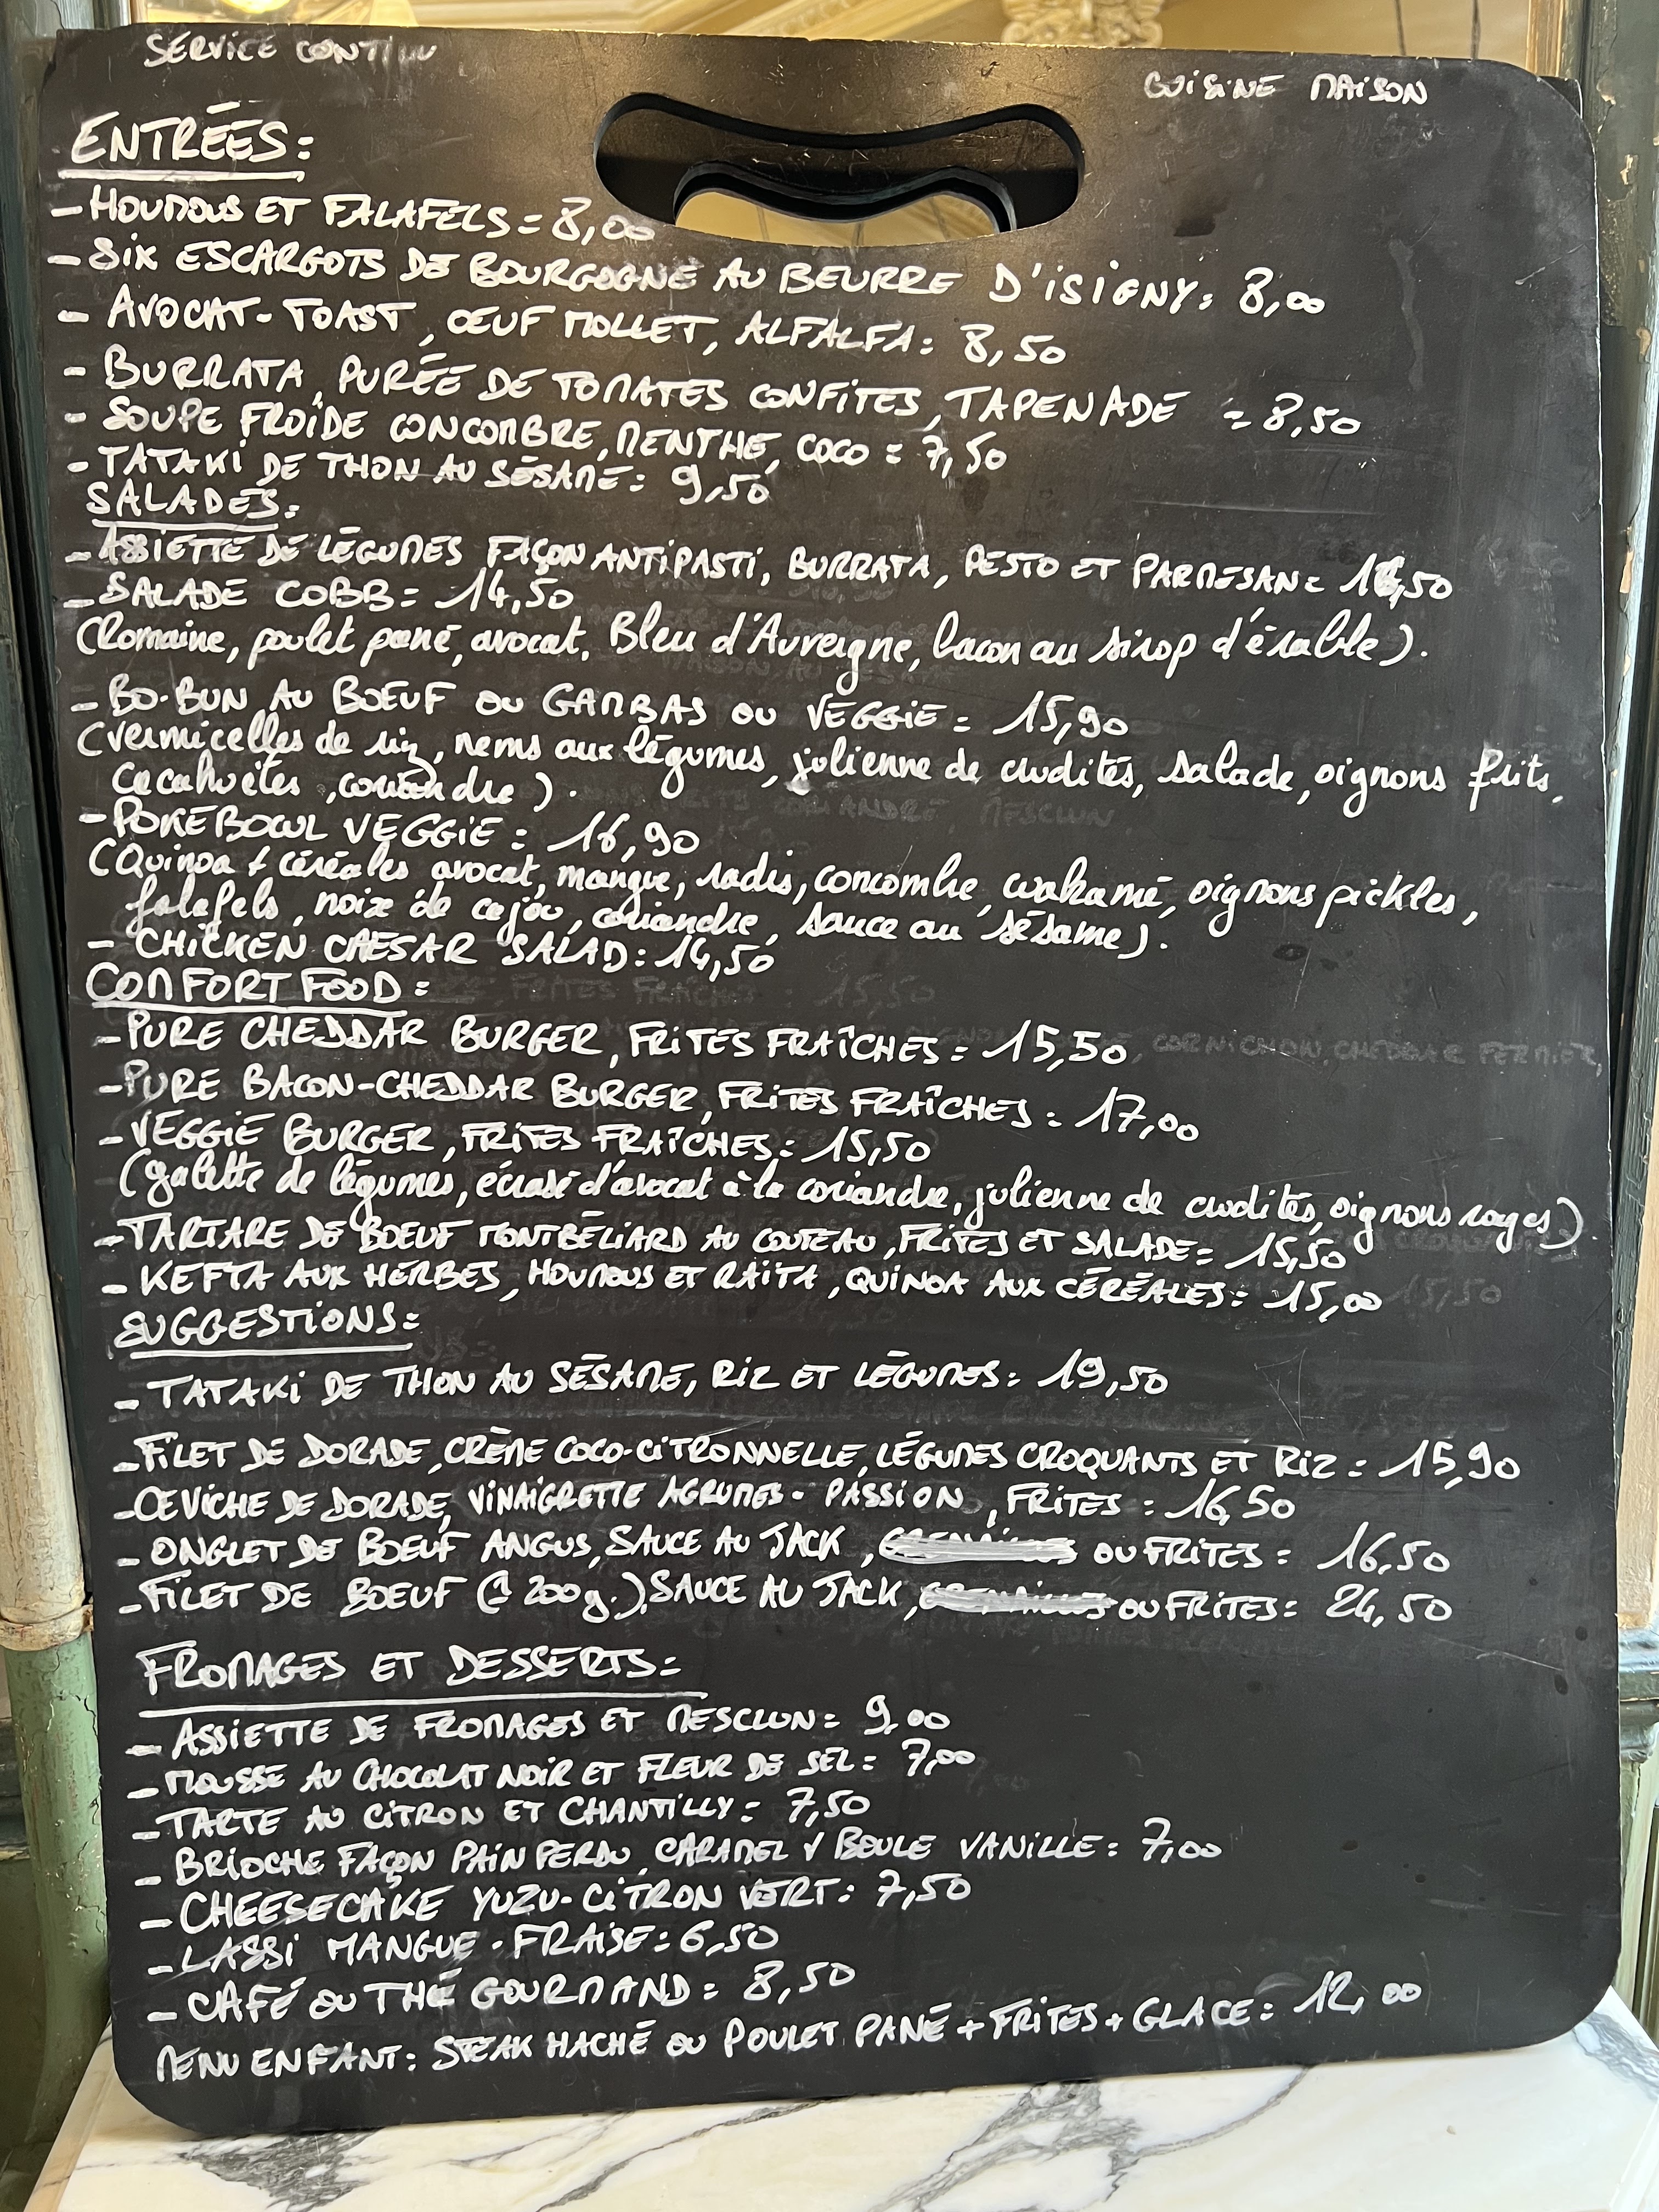 SERVICE CONTINU
CUISINE MAISON
ENTRÉES:
- HOUMOUS ET FALAFELS = 8,00
- SIX ESCARGOTS DE BOURGOGNE AU BEURRE D'ISIGNY: 8,00
- AVOCAT-TOAST, ŒUF MOLLET, ALFALFA: 8,50
- BURRATA, PURÉE DE TOMATES CONFITES, TAPENADE = 8,50
- SOUPE FROIDE CONCOMBRE, MENTHE, COCO = 7,50
- TATAKI DE THON AU SÉSAME: 9,50
SALADES:
- ASSIETTE DE LÉGUMES FAÇON ANTIPASTI, BURRATA, PESTO ET PARMESAN = ,50
- SALADE COBB = 14,50
(Romaine, poulet pané, avocat, Bleu d'Auvergne, bacon au sirop d'érable).
- BO-BUN AU BOEUF OU GAMBAS OU VEGGIE = 15,90
(vermicelles de riz, nems aux légumes, julienne de crudités, salade, oignons frits,
cacahuètes, coriandre).
- POKE BOWL VEGGIE: 16,90
(Quinoa + céréales avocat, mangue, radis, concombre, wakamé, oignons pickles,
falafels, noix de cajou, coriandre, sauce au sésame).
- CHICKEN CAESAR SALAD: 14,50
CONFORT FOOD:
- PURE CHEDDAR BURGER, FRITES FRAÎCHES = 15,50
- PURE BACON-CHEDDAR BURGER, FRITES FRAÎCHES = 17,00
- VEGGIE BURGER, FRITES FRAÎCHES: 15,50
(galette de légumes, écrasé d'avocat à la coriandre, julienne de crudités, oignons rouges).
- TARTARE DE BOEUF MONTBÉLIARD AU COUTEAU, FRITES ET SALADE = 15,50
- KEFTA AUX HERBES, HOUMOUS ET RAITA, QUINOA AUX CÉRÉALES: 15,00
SUGGESTIONS:
- TATAKI DE THON AU SÉSAME, RIZ ET LÉGUMES: 19,50
- FILET DE DORADE, CRÈME COCO-CITRONNELLE, LÉGUMES CROQUANTS ET RIZ = 15,90
- CEVICHE DE DORADE, VINAIGRETTE AGRUMES - PASSION, FRITES = 16,50
- ONGLET DE BOEUF ANGUS, SAUCE AU JACK, OU FRITES = 16,50
- FILET DE BOEUF (200g.), SAUCE AU JACK, OU FRITES = 24,50
FROMAGES ET DESSERTS:
- ASSIETTE DE FROMAGES ET MESCLUN = 9,00
- MOUSSE AU CHOCOLAT NOIR ET FLEUR DE SEL = 7,00
- TARTE AU CITRON ET CHANTILLY = 7,50
- BRIOCHE FAÇON PAIN PERDU, CARAMEL + BOULE VANILLE = 7,00
- CHEESECAKE YUZU-CITRON VERT: 7,50
- LASSI MANGUE - FRAISE: 6,50
- CAFÉ OU THÉ GOURMAND = 8,50
MENU ENFANT: STEAK HACHÉ OU POULET PANÉ + FRITES + GLACE = 12,00